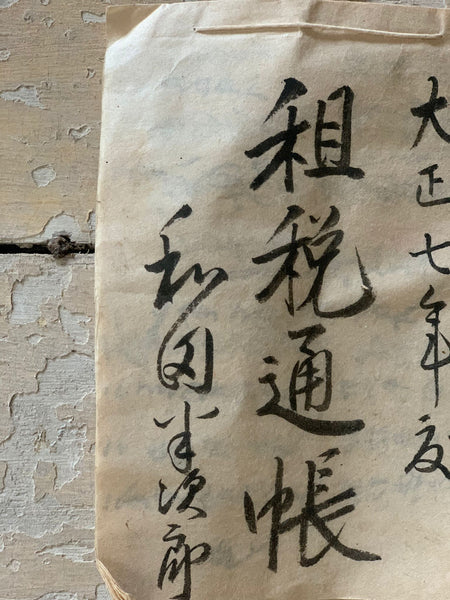 大正七年度
租税通帳
和田半次郎